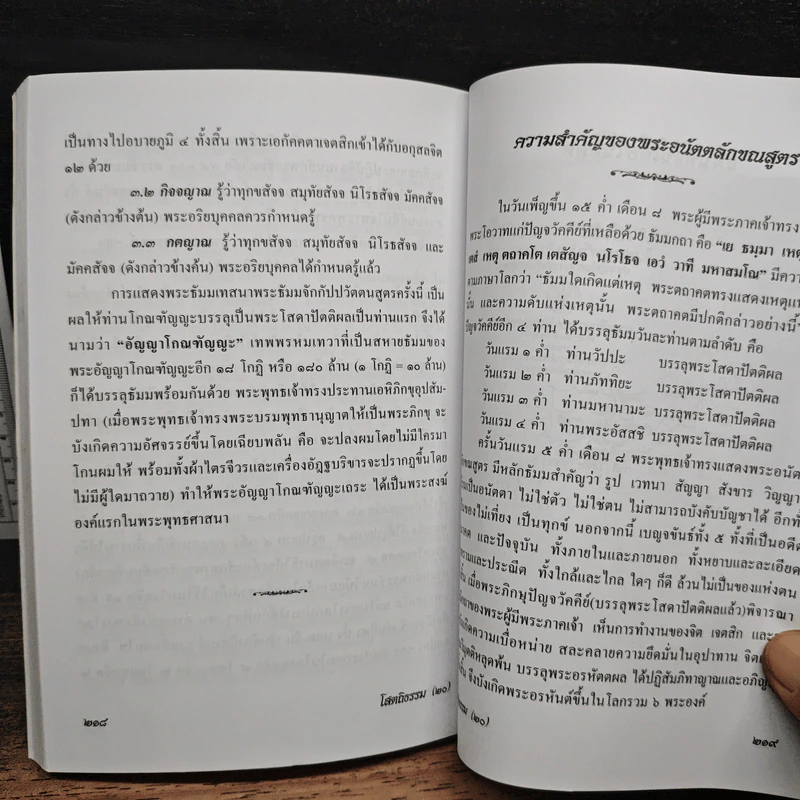 เป็นทางไปอบายภูมิ ๔ ทั้งสิ้น เพราะเอกัคคตาเจตสิกเข้าได้กับอกุสลจิต
๑๒ ด้วย
๓.๒ กิจจญาณ รู้ว่าทุกขสัจจ สมุทัยสัจจ นิโรธสัจจ มัคคสัจจ
(ดังกล่าวข้างต้น) พระอริยบุคคลควรกำหนดรู้
๓.๓ กตญาณ รู้ว่าทุกขสัจจ สมุทัยสัจจ นิโรธสัจจ และ
มัคคสัจจ (ดังกล่าวข้างต้น) พระอริยบุคคลได้กำหนดรู้แล้ว
การแสดงพระธัมมเทสนาพระธัมมจักกัปปวัตตนสูตรครั้งนี้ เป็น
ผลให้ท่านโกณฑัญญะบรรลุเป็นพระโสดาปัตติผลเป็นท่านแรก จึงได้
นามว่า “อัญญาโกณฑัญญะ” เทพพรหมเทวาที่เป็นสหายธัมมของ
พระอัญญาโกณฑัญญะอีก ๑๘ โกฏิ หรือ ๑๘๐ ล้าน (๑ โกฏิ = ๑๐ ล้าน)
ก็ได้บรรลุธัมมพร้อมกันด้วย พระพุทธเจ้าทรงประทานเอหิภิกขุอุปสัม-
ปทา (เมื่อพระพุทธเจ้าทรงพระบรมพุทธานุญาตให้เป็นพระภิกขุ จะ
บังเกิดความอัศจรรย์ขึ้นโดยเฉียบพลัน คือ จะปลงผมโดยไม่มีใครมา
โกนผมให้ พร้อมทั้งผ้าไตรจีวรและเครื่องอัฏฐบริขารจะปรากฏขึ้นโดย
ไม่มีผู้ใดมาถวาย) ทำให้พระอัญญาโกณฑัญญะเถระ ได้เป็นพระสงฆ์
องค์แรกในพระพุทธศาสนา
โสตถิธรรม (๒๐)
๒๑๘
ความสำคัญของพระอนัตตลักขณสูตร
ในวันเพ็ญขึ้น ๑๕ ค่ำ เดือน ๘ พระผู้มีพระภาคเจ้าทรง
พระโอวาทแก่ปัญจวัคคีย์ที่เหลือด้วย ธัมมกถา คือ “เย ธมฺมา เหตุ
เหตุ ตถาคโต เตสัญจ นโรโธจ เอวํ วาที มหาสมโณ” มีความ
ตามภาษาโลกว่า “ธัมมใดเกิดแต่เหตุ พระตถาคตทรงแสดงเหตุแห
นั้น และความดับแห่งเหตุนั้น พระตถาคตมีปกติกล่าวอย่างนี้”
ปัญจวัคคีย์อีก ๔ ท่าน ได้บรรลุธัมมวันละท่านตามลำดับ คือ
วันแรม ๑ ค่ำ ท่านวัปปะ บรรลุพระโสดาปัตติผล
วันแรม ๒ ค่ำ ท่านภัททิยะ บรรลุพระโสดาปัตติผล
วันแรม ๓ ค่ำ ท่านมหานามะ บรรลุพระโสดาปัตติผล
วันแรม ๔ ค่ำ ท่านพระอัสสชิ บรรลุพระโสดาปัตติผล
ครั้นวันแรม ๕ ค่ำ เดือน ๘ พระพุทธเจ้าทรงแสดงพระอนัต
ขณสูตร มีหลักธัมมสำคัญว่า รูป เวทนา สัญญา สังขาร วิญญา
เป็นอนัตตา ไม่ใช่ตัว ไม่ใช่ตน ไม่สามารถบังคับบัญชาได้ อีกทั้
ของไม่เที่ยง เป็นทุกข์ นอกจากนี้ เบญจขันธ์ทั้ง ๕ ทั้งที่เป็นอดีต
และปัจจุบัน ทั้งภายในและภายนอก ทั้งหยาบและละเอียด
และประณีต ทั้งใกล้และไกล ใดๆ ก็ดี ล้วนไม่เป็นของแห่งตน
เมื่อพระภิกษุปัญจวัคคีย์(บรรลุพระโสดาปัตติผลแล้ว)พิจารณา
ของพระผู้มีพระภาคเจ้า เห็นการทำงานของจิต เจตสิก และ
เกิดความเบื่อหน่าย สละคลายความยึดมั่นในอุปาทาน จิต
หลุดพ้น บรรลุพระอรหัตตผล ได้ปฏิสัมภิทาญาณและอภิญ
จึงบังเกิดพระอรหันต์ขึ้นในโลกรวม ๖ พระองค์
(๒๐)
๒๑๙